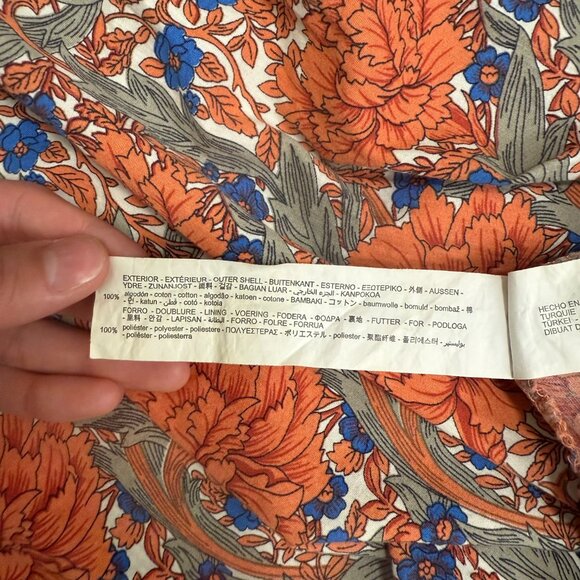 EXTERIOR - EXTÉRIEUR - OUTER SHELL - BUITENKANT - ESTERNO - ΕΞΩΤΕΡΙΚΟ - 外側 - AUSSEN -
YDRE - ZUNANJOST - 面料 - 겉감 - BAGIAN LUAR - الجزء الخارجي - KANPOKOA
100% algodón - coton - cotton - algodão - katoen - cotone - ΒΑΜΒΑΚΙ - コットン - baumwolle - bomuld - bombaž - 棉
- 면 - katun - قطن - cotó - kotoia
FORRO - DOUBLURE - LINING - VOERING - FODERA - ΦΟΔΡΑ - 裏地 - FUTTER - FOR - PODLOGA
- 里料 - 안감 - LAPISAN - البطانة - FORRO - FOLRE - FORRUA
100% poliéster - polyester - poliestere - ΠΟΛΥΕΣΤΕΡΑΣ - ポリエステル - poliester - 聚酯纤维 - 폴리에스터 - بوليستير
- polièster - poliesterra
HECHO EN
TURQUIE
TÜRKEI
DIBUAT D